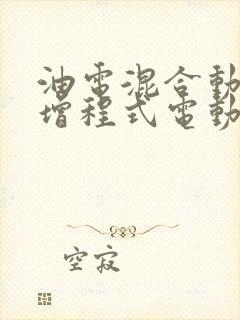 油電混合動
增程式電動
空寂